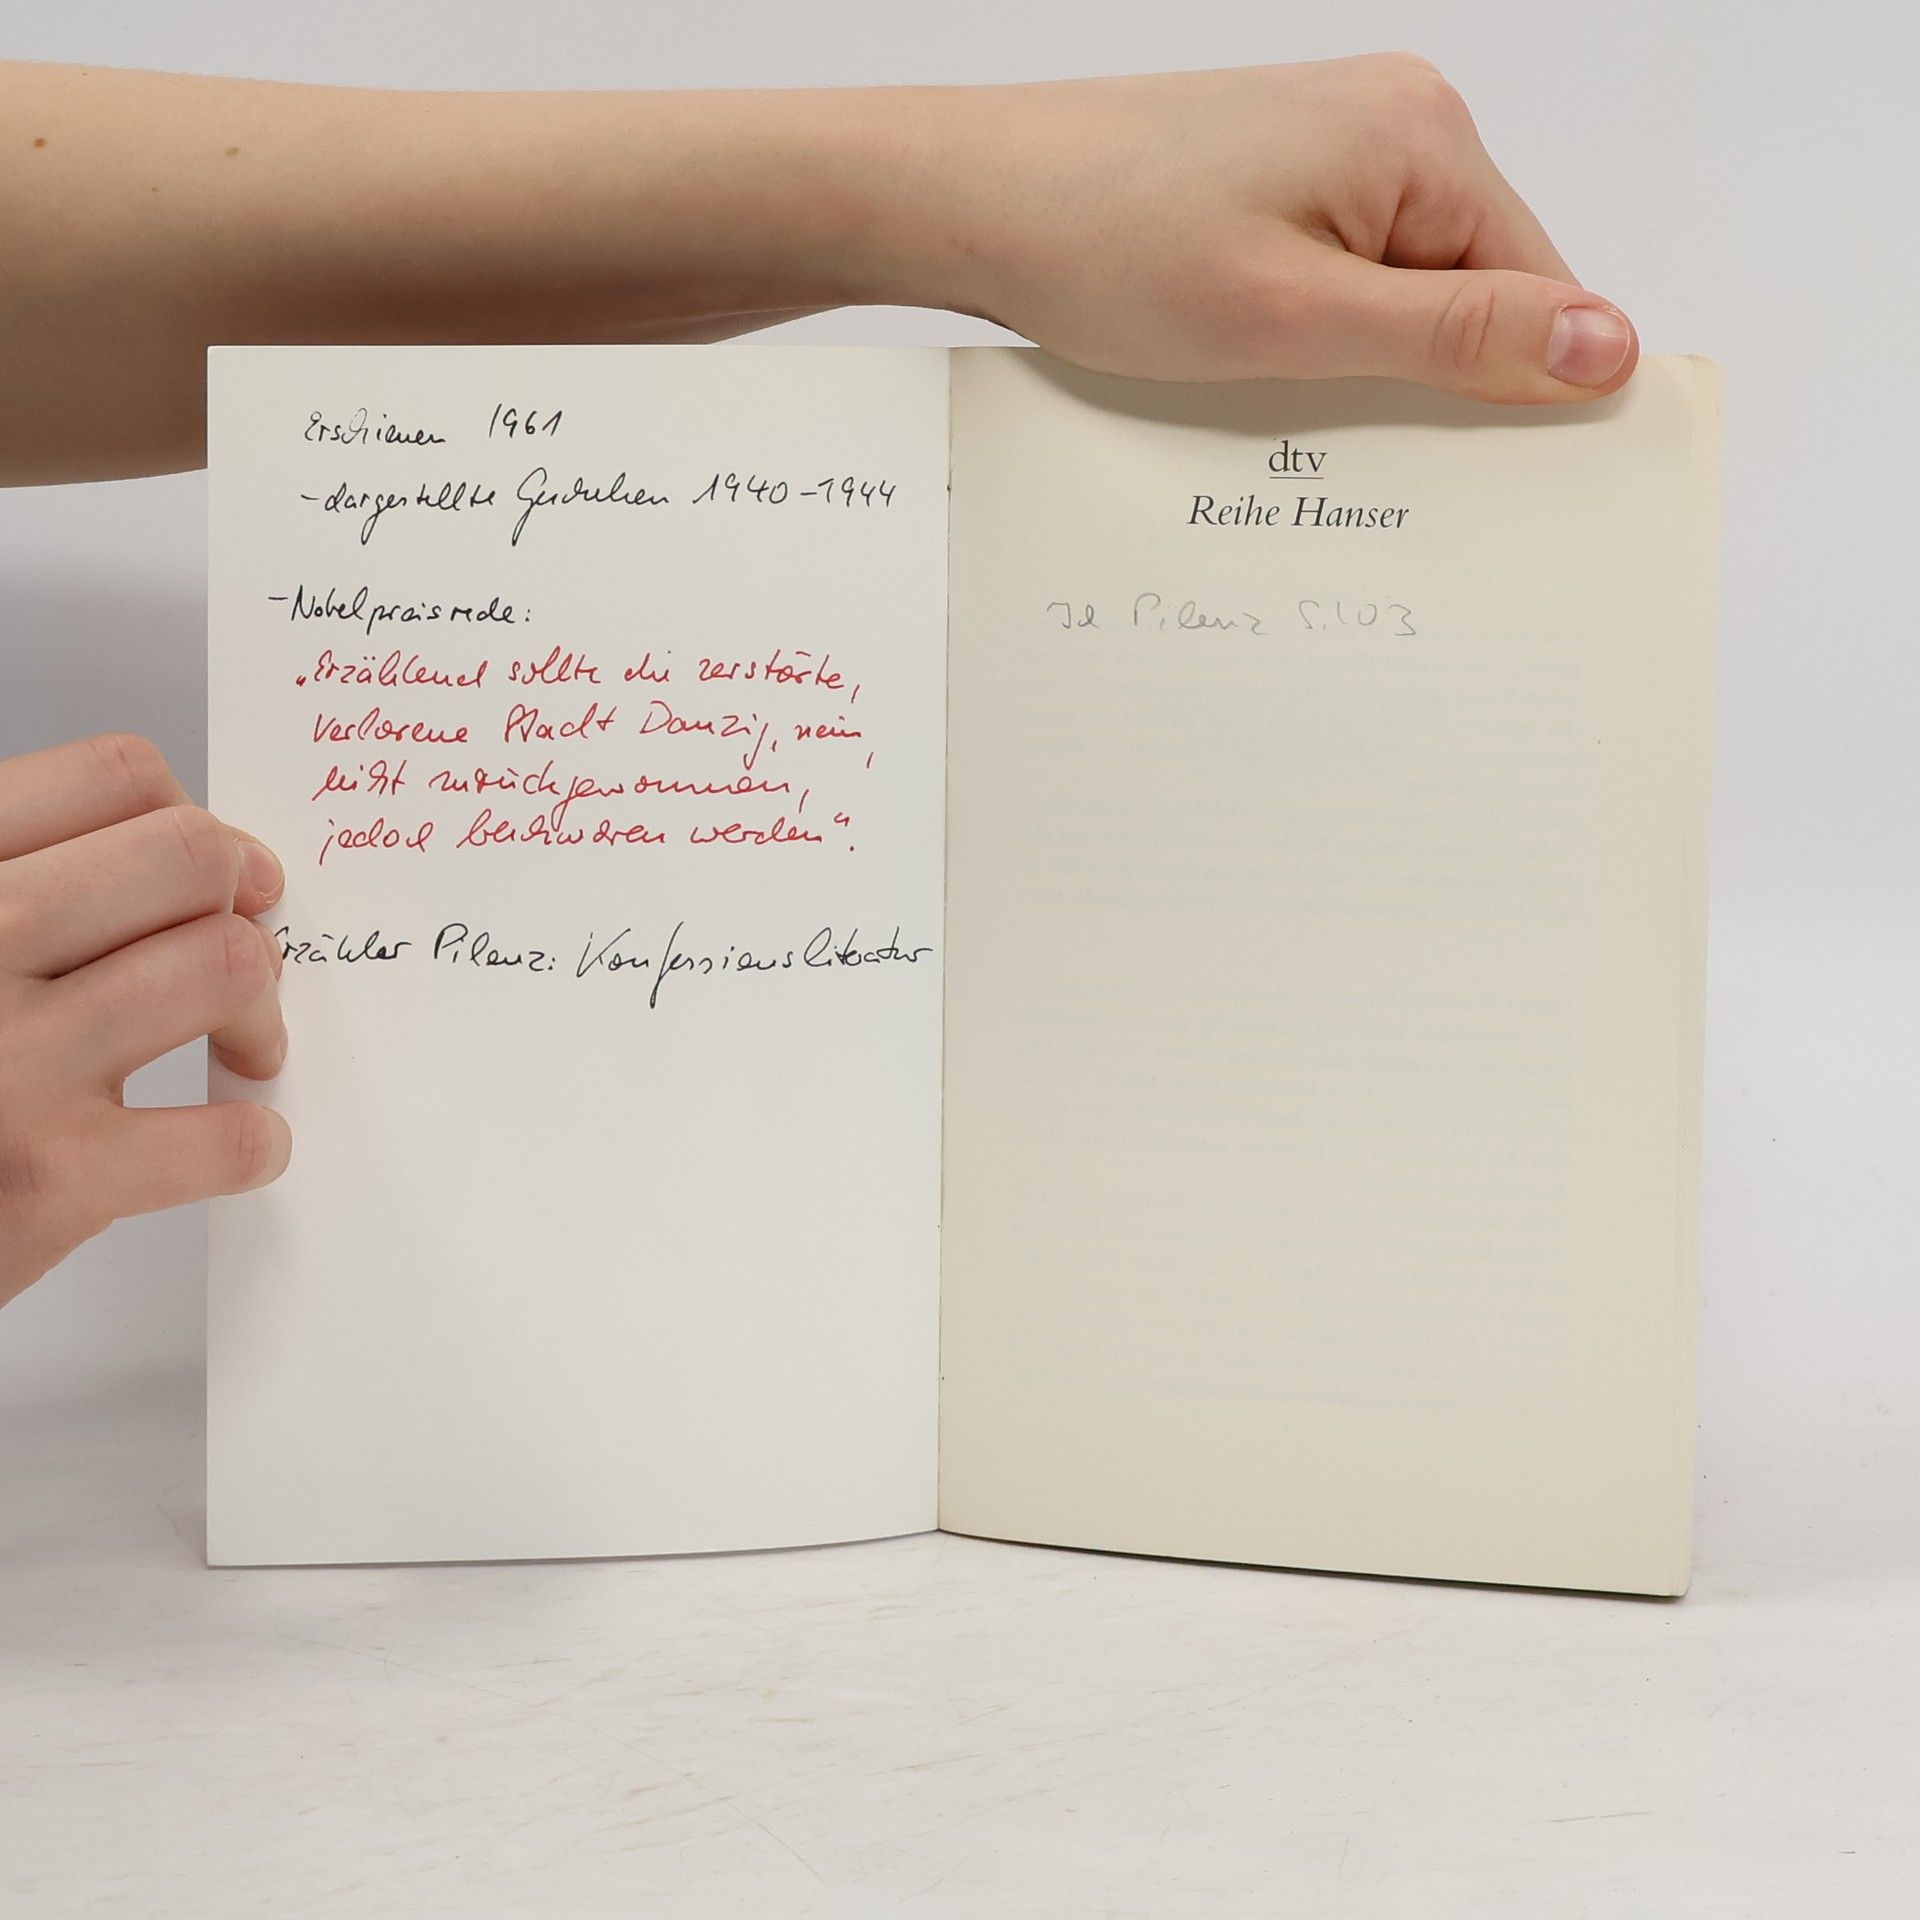 Erschienen 1961
- dargestellte Geschehen 1940-1944
- Nobelpreisrede:
„Erzählend sollte die zerstörte,
verlorene Stadt Danzig, nein,
nicht zurückgewonnen,
jedoch beschworen werden“.
Erzähler Pilenz: Konfessionsliteratur
dtv
Reihe Hanser
Ich Pilenz S.103